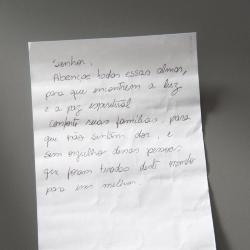 Senhor,
Abençoe todas essas almas,
para que encontrem a luz
e a paz espiritual
conforte suas famílias, para
que não sintam dor, e
sem orgulho dessas pessoas
que foram tirados deste mundo
para um melhor.